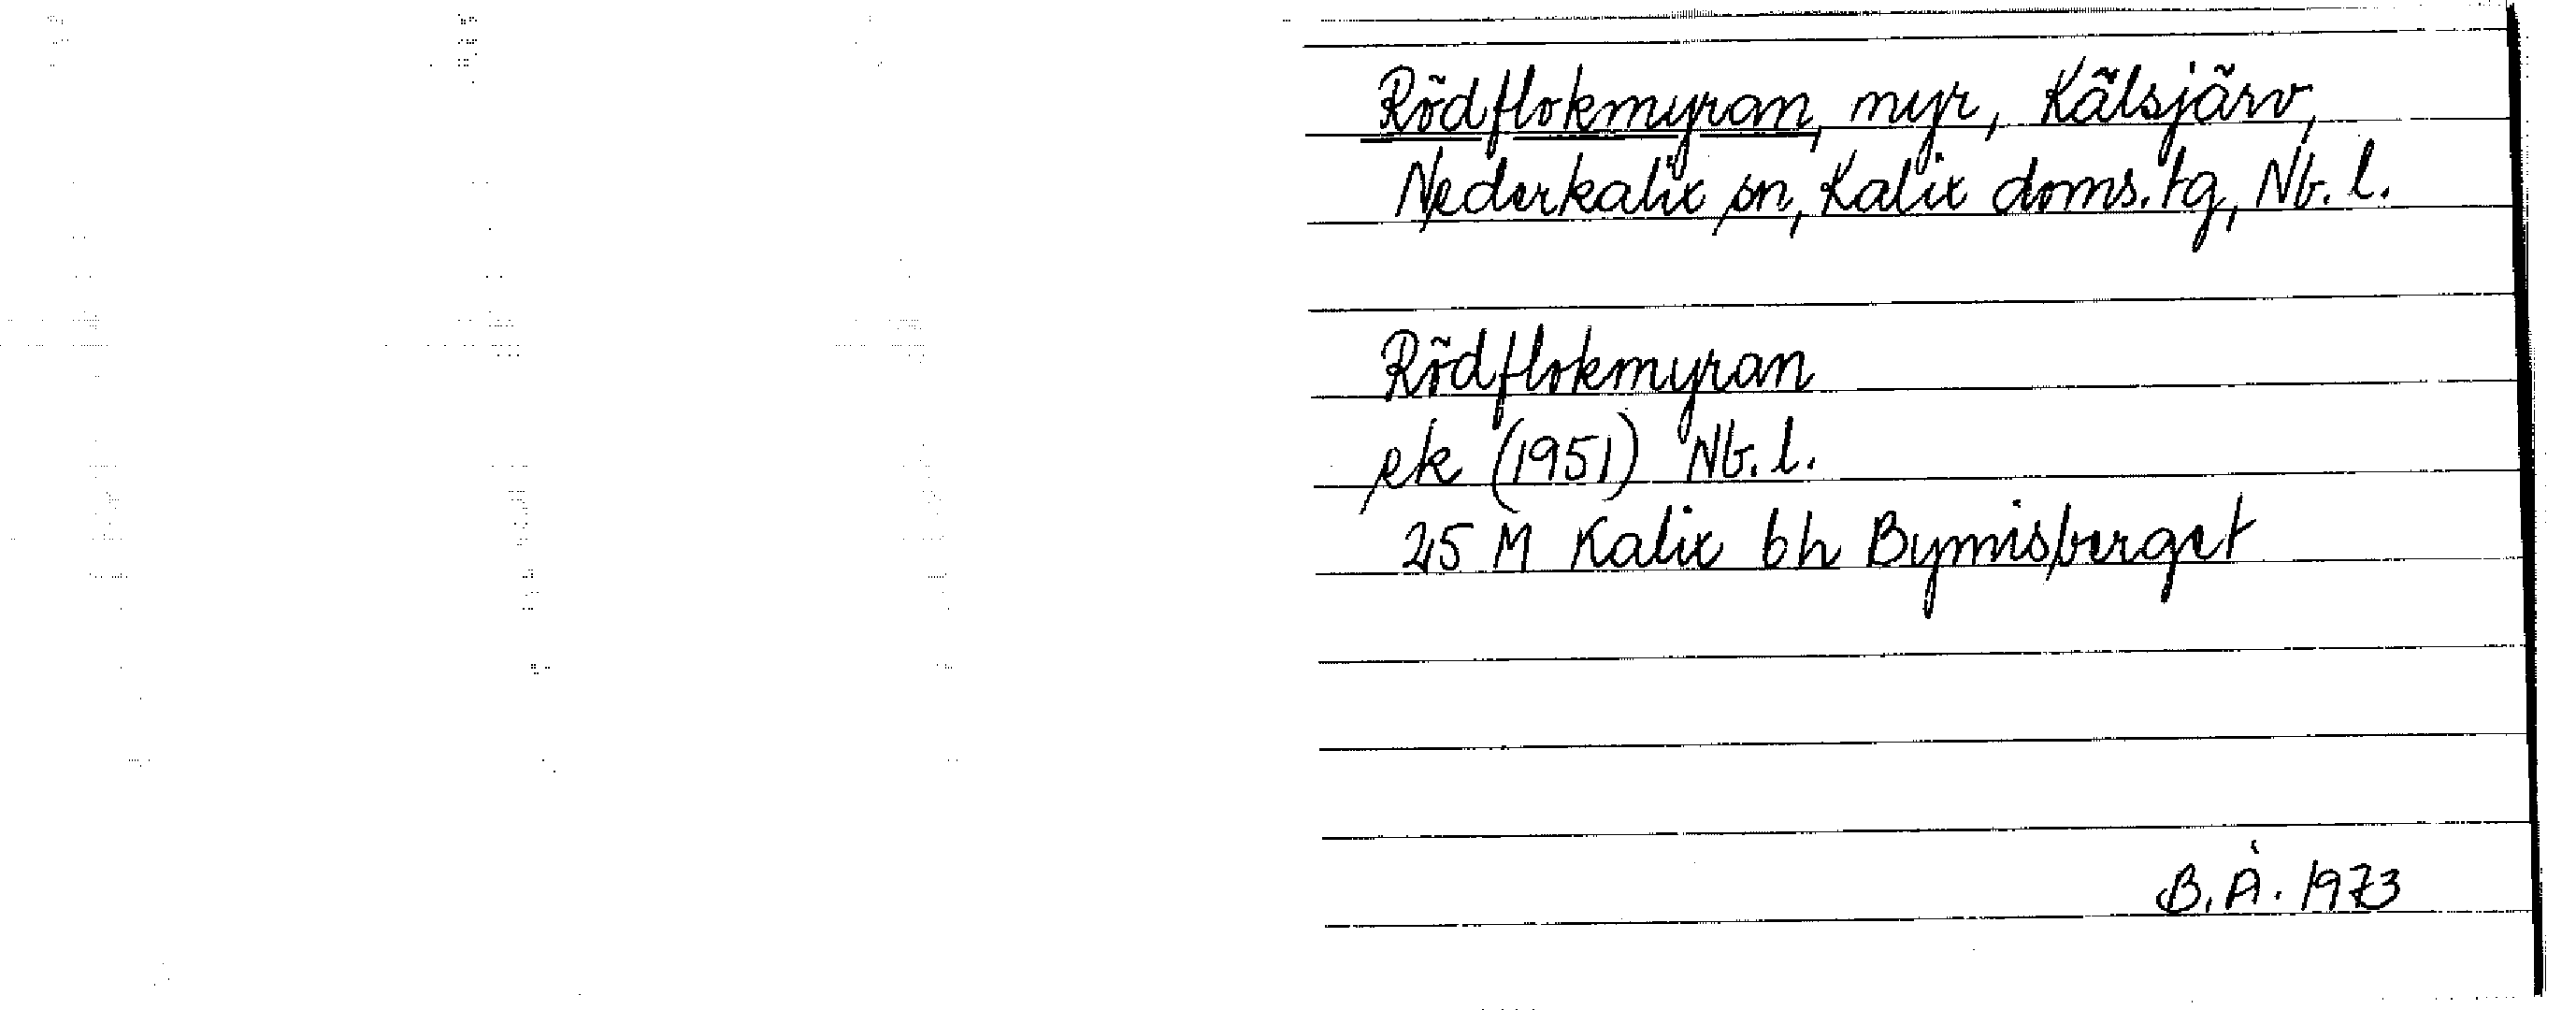 Rödflokmyran, myr, Kälsjärv,
Nederkalix sn, Kalix doms.tg, Nb. l.
Rödflokmyran
ek (1951) Nb. l.
25 M Kalix bh Bymisberget
B.Å. 1973